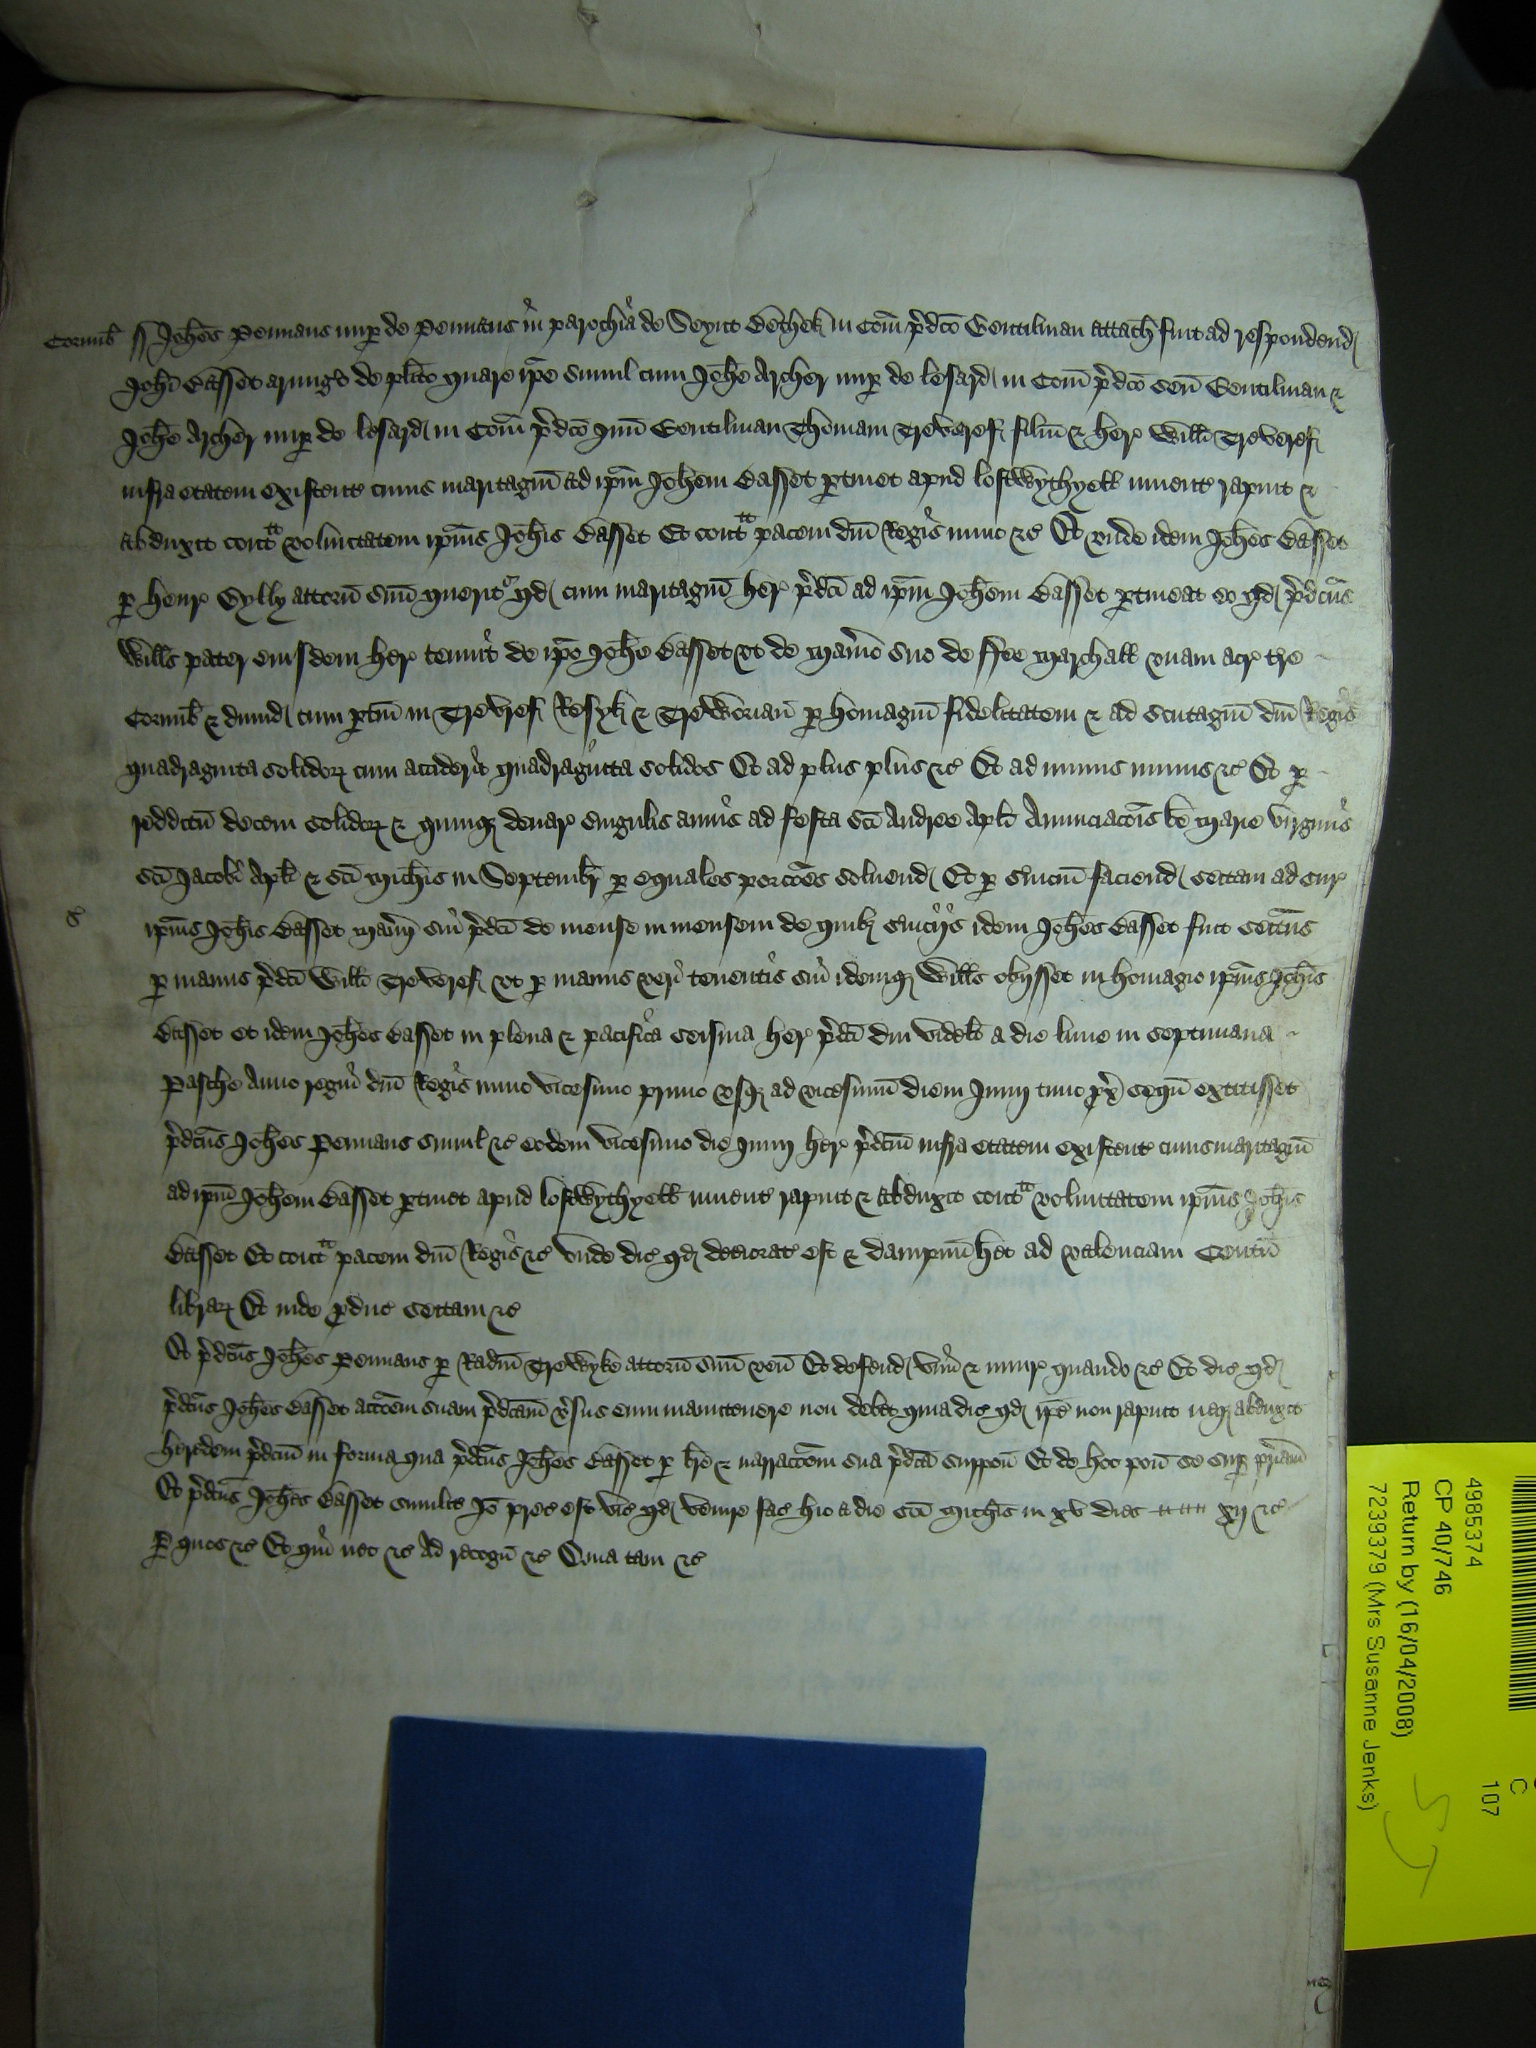 Cornub ss Joh̄es Pennans nup̱ de Pennans in parochia de Seynt Bethek in Com̄ p̄dc̄o Gentilman attach fuit ad respondend
Joh̄i Basset armig̃o de plīto quare ip̄e simul cum Joh̄e Archer nup̱ de lesard in Com̄ p̄dc̄o sen̄ Gentilman &
Joh̄e Archer nup̱ de lesard in Com̄ p̄dc̄o Jun̄ Gentilman Thomam Treveref filiū & her̄ Will̄i Treveref
infra etatem existent̄ cuius maritagiū ad ip̄m Joh̄em Basset p̱tinet apud lostwythyell invent̄ rapuit &
abduxit contᵃ voluntatem ip̄ius Joh̄is Basset Et contᵃ pacem dn̄i Regis nunc &c Et unde idem Joh̄es Basset
p̱ Henr̄ Sylly attorn̄ suū queritʳ qd cum maritagiū her̄ p̄dc̄i ad ip̄m Joh̄em Basset p̱tineat eo qd p̄dc̄us
Will̄s pater eiusdem her̄ tenuit de ip̄o Joh̄e Basset ut de Man̄io suo de ffee Marchall unam acr̄ tr̄e
Cornub & dimid cum p̱tin̄ in Trevref Resyk & Treworian p̱ homagiū fidelitatem & ad scutagiū dn̄i Regis
quadraginta solidoꝝ cum acciderit quadraginta solidos Et ad plus plus &c Et ad minus minus &c Et p̱
redditū decem solidoꝝ & quinqꝫ denar̄ singulis annis ad festa sc̄i Andree Apl̄i Annunciac̄ois b̄e Marie virginis
sc̄i Jacobi Apl̄i & sc̄i Mich̄is in Septembr̄ p̱ equales porc̄oes solvend Et p̱ s̄viciū faciend sectam ad cur̄
ip̄ius Joh̄is Basset Man̄ii sui p̄dc̄i de mense in mensem de quibꝫ s̄viciis idem Joh̄es Basset fuit seitus
p̱ manus p̄dc̄i Will̄i Treveref ut p̱ manus veri tenentis sui idemqꝫ Will̄s obijsset in homagio ip̄ius Joh̄is
Basset et idem Joh̄es Basset in plena & pacifica seisina her̄ p̄dc̄i diu videlt̄ a die lune in septimana
Pasche Anno regni dn̄i Regis nunc vicesimo primo usqꝫ ad vicesimū diem Junij tunc p̱x̄ seqū extitisset
p̄dc̄us Joh̄es Pennans simul &c eodem vicesimo die Junij her̄ p̄dc̄um infra etatem existent̄ cuius maritagiū
ad ip̄m Joh̄em Basset p̱tinet apud lostwythyell invent̄ rapuit & abduxit contᵃ voluntatem ip̄ius Joh̄is
Basset Et contᵃ pacem dn̄i Regis &c unde dic̄ qd deteriorat̄ est & dampnū h̄et ad valenciam Centū
libraꝝ Et inde p̱duc̄ sectam &c
Et p̄dc̄us Joh̄es Pennans p̱ Radm̄ Trewyke attorn̄ suū ven̄ Et defend vim & iniur̄ quando &c Et dic̄ qd
p̄dc̄us Joh̄es Basset acc̄oem suam p̄dc̄am v̄sus eum manutenere non debet quia dic̄ qd ip̄e non rapuit neqꝫ abduxit
heredem p̄dc̄um in forma qua p̄dc̄us Joh̄es Basset p̱ br̄e & narrac̄oem sua p̄dc̄a suppon̄ Et de hoc pon̄ se sup̱ pr̄iam
Et p̄dc̄us Joh̄es Basset similit̄ Jō prec̄ est vic̄ qd venire fac̄ hic a die sc̄i Mich̄is in xv dies xij &c
p̱ quos &c Et qui nec &c Ad recogn̄ &c Quia tam &c
4985374
CP 40/746
Return by (16/04/2008)
7239379 (Mrs Susanne Jenks)
C
107